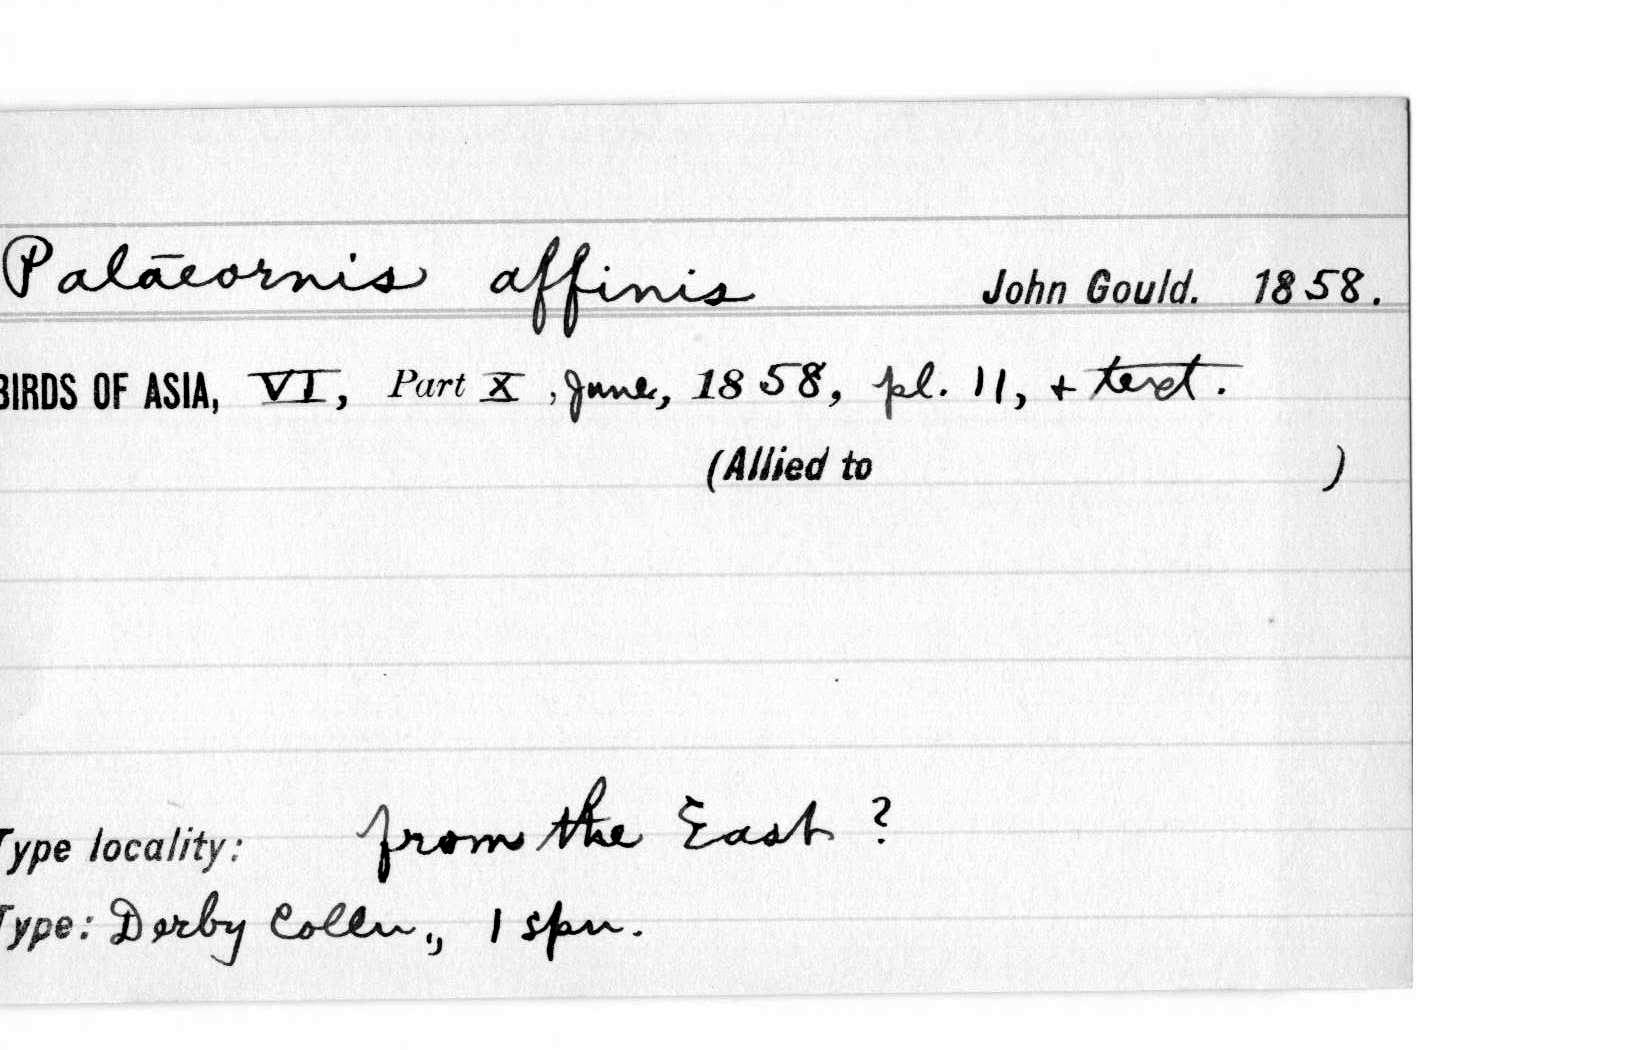 Palaeornis affinis John Gould. 1858.
BIRDS OF ASIA, VI, Part X, June, 1858, pl. 11, + text.
(Allied to )
Type locality: from the East ?
Type: Derby Colln., 1 spn.